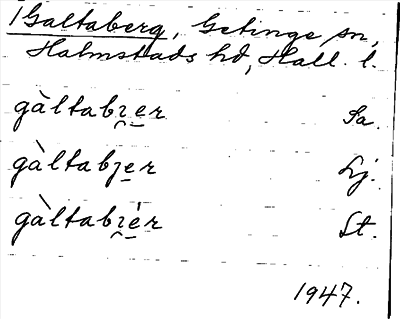 /Galtaberg, Getinge sn,
Halmstads hd, Hall. l.
gàltabı̯e̠r Sa.
gàltabȷe̠r Lj.
gàltabı̯é̠r St.
1947.